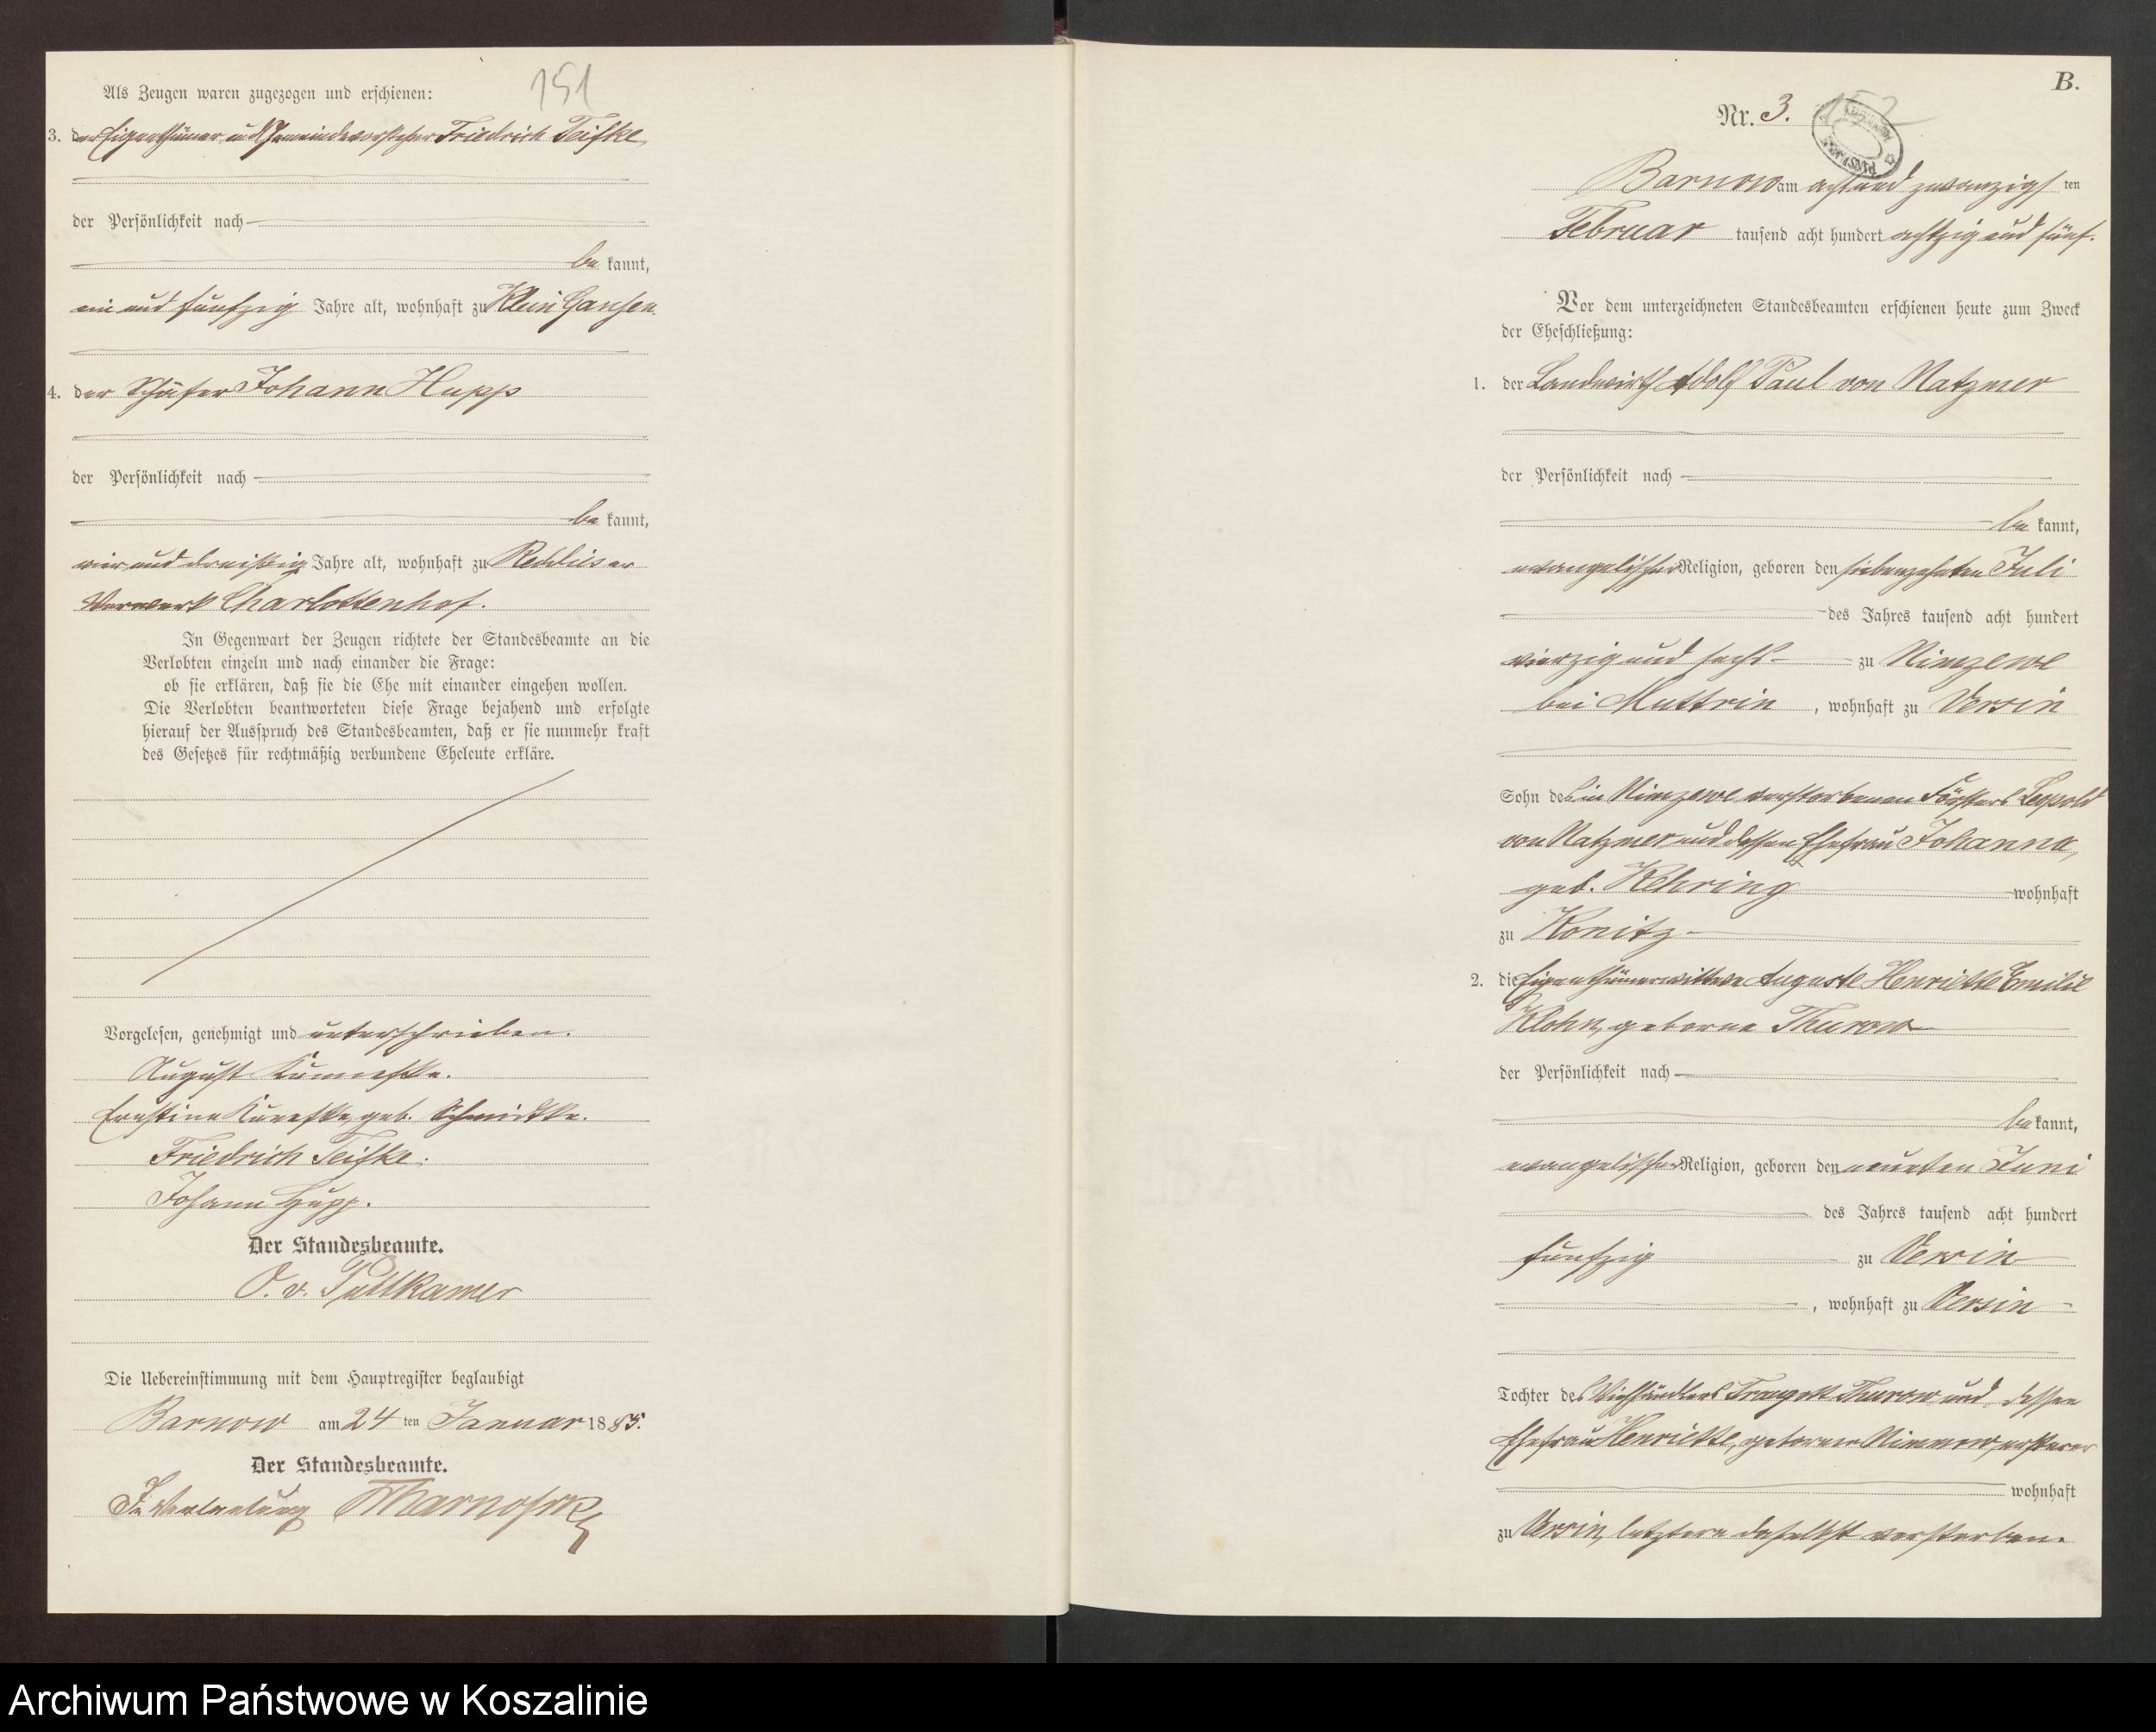 151
Als Zeugen waren zugezogen und erschienen:
3. der Eigenthümer und Gemeindevorsteher Friedrich Teifke,
der Persönlichkeit nach
be kannt,
ein und fünfzig Jahre alt, wohnhaft zu Klein Gansen.
4. der Schäfer Johann Hupp
der Persönlichkeit nach
be kannt,
vier und dreißig Jahre alt, wohnhaft zu Reddieser
Vorwerk Charlottenhof.
In Gegenwart der Zeugen richtete der Standesbeamte an die
Verlobten einzeln und nach einander die Frage:
ob sie erklären, daß sie die Ehe mit einander eingehen wollen.
Die Verlobten beantworteten diese Frage bejahend und erfolgte
hierauf der Ausspruch des Standesbeamten, daß er sie nunmehr kraft
des Gesetzes für rechtmäßig verbundene Eheleute erkläre.
Vorgelesen, genehmigt und unterschrieben.
August
Ernstine geb. Schmidtke.
Friedrich Teifke.
Johann Hupp.
Der Standesbeamte.
O. v. Puttkamer
Die Uebereinstimmung mit dem Hauptregister beglaubigt
Barnow am 24 ten Januar 1885.
Der Standesbeamte.
In Vertretung
B.
Nr. 3.
152
Barnow am acht und zwanzigs ten
Februar tausend acht hundert achtzig und fünf.
Vor dem unterzeichneten Standesbeamten erschienen heute zum Zweck
der Eheschließung:
1. der Landwirth Adolf Paul von Natzmer
der Persönlichkeit nach
be kannt,
evangelischer Religion, geboren den siebenzehnten Juli
des Jahres tausend acht hundert
vierzig und sechs zu Nimzewe
bei Muttrin, wohnhaft zu Versin
Sohn des in Nimzewe verstorbenen Försters Leopold
von Natzmer und dessen Ehefrau Johanna,
geb. Kehring wohnhaft
zu Konitz
2. die Eigenthümerwittwe Auguste Henriette Emilie
Klohn, geborne Thurow
der Persönlichkeit nach
be kannt,
evangelischer Religion, geboren den neunten Juni
des Jahres tausend acht hundert
fünfzig zu Versin
, wohnhaft zu Versin
Tochter des Viehhändlers Traugott Thurow und dessen
Ehefrau Henriette, geborner Nimmow, ersterer
wohnhaft
zu Versin, letztere daselbst verstorben.
Archiwum Państwowe w Koszalinie